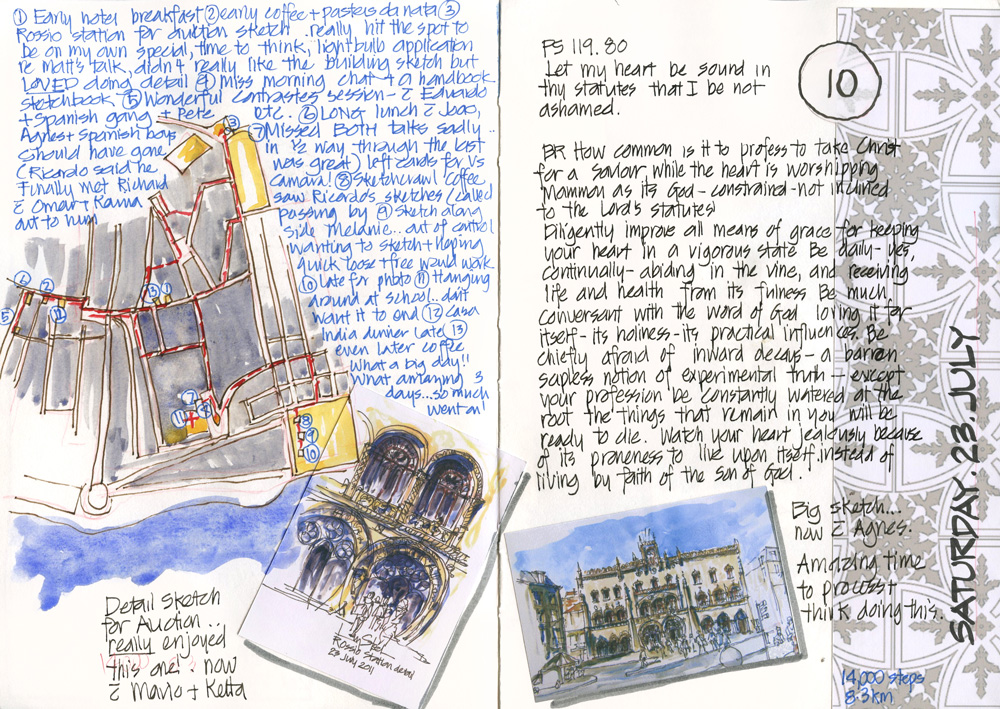 ① Early hotel breakfast ② early coffee + pasteis da nata ③
Rossio station for auction sketch.. really hit the spot to
be on my own special, time to think, lightbulb application
re Matt's talk, didn't really like the building sketch but
LOVED doing detail ④ Miss morning chat 4 a handbook
sketchbook ⑤ Wonderful contrastes session - c̄ Eduardo
+ Spanish gang + Pete etc. ⑥ LONG lunch c̄ Joao,
Agnes + Spanish boys ⑦ Missed BOTH talks sadly..
should have gone in ½ way through the last
(Ricardo said he was great) left cards for Vs
Finally met Richard Camara! ⑧ Sketchcrawl coffee
c̄ Omar + Rania saw Ricardo's sketches (called
out to him passing by ⑨ Sketch along
side Melanie... out of control
wanting to sketch + hoping
quick loose + free would work
⑩ late for photo ⑪ Hanging
around at school.. don't
want it to end ⑫ Casa
India dinner late ⑬
even later coffee
what a big day!!
What amazing 3
days...so much
went on!
Detail Sketch
for Auction..
really enjoyed
this one! now
c̄ Mario + Ketta
Rossio Station detail
23 July 2011
PS 119.80
Let my heart be sound in
thy statutes that I be not
ashamed.
10
BR How common is it to profess to take Christ
for a Saviour while the heart is worshipping
Mammon as its God - constrained - not inclined
to the Lord's statutes!
Diligently improve all means of grace for keeping
your heart in a vigorous state Be daily - yes,
continually - abiding in the vine, and receiving
life and health from its fulness Be much
conversant with the word of God loving it for
itself - its holiness - its practical influences. Be
chiefly afraid of inward decays - a barren
sapless notion of experimental truth - except
your profession be constantly watered at the
root the things that remain in you will be
ready to die. Watch your heart jealously because
of its proneness to live upon itself instead of
living by faith of the Son of God.
Big sketch...
now c̄ Agnes.
Amazing time
to process +
think doing this.
SATURDAY. 23. JULY
14,000 steps
8.3km